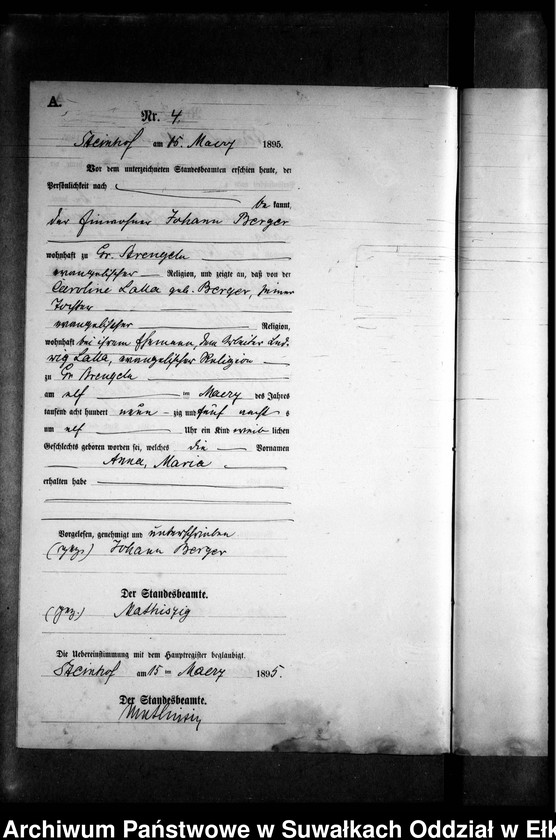 A.
Nr. 4.
Steinhof am 15. Maerz 1895.
Vor dem unterzeichneten Standesbeamten erschien heute, der
Persönlichkeit nach
be kannt,
der Einwohner Johann Berger
wohnhaft zu Gr. Strengeln
evangelischer Religion, und zeigte an, daß von der
Caroline Lalla geb. Berger, seiner
Tochter
evangelischer Religion,
wohnhaft bei ihrem Ehemann, dem Arbeiter Lud-
wig Lalla, evangelischer Religion
zu Gr Strengeln
am elf ten Maerz des Jahres
tausend acht hundert neun zig und fünf nachts
um elf Uhr ein Kind weib lichen
Geschlechts geboren worden sei, welches die Vornamen
Anna, Maria
erhalten habe
Vorgelesen, genehmigt und unterschrieben
(gez.) Johann Berger
Der Standesbeamte.
(gez.) Mathiszig
Die Uebereinstimmung mit dem Hauptregister beglaubigt.
Steinhof am 15 ten Maerz 1895.
Der Standesbeamte.
Mathiszig
Archiwum Państwowe w Suwałkach Oddział w Ełk